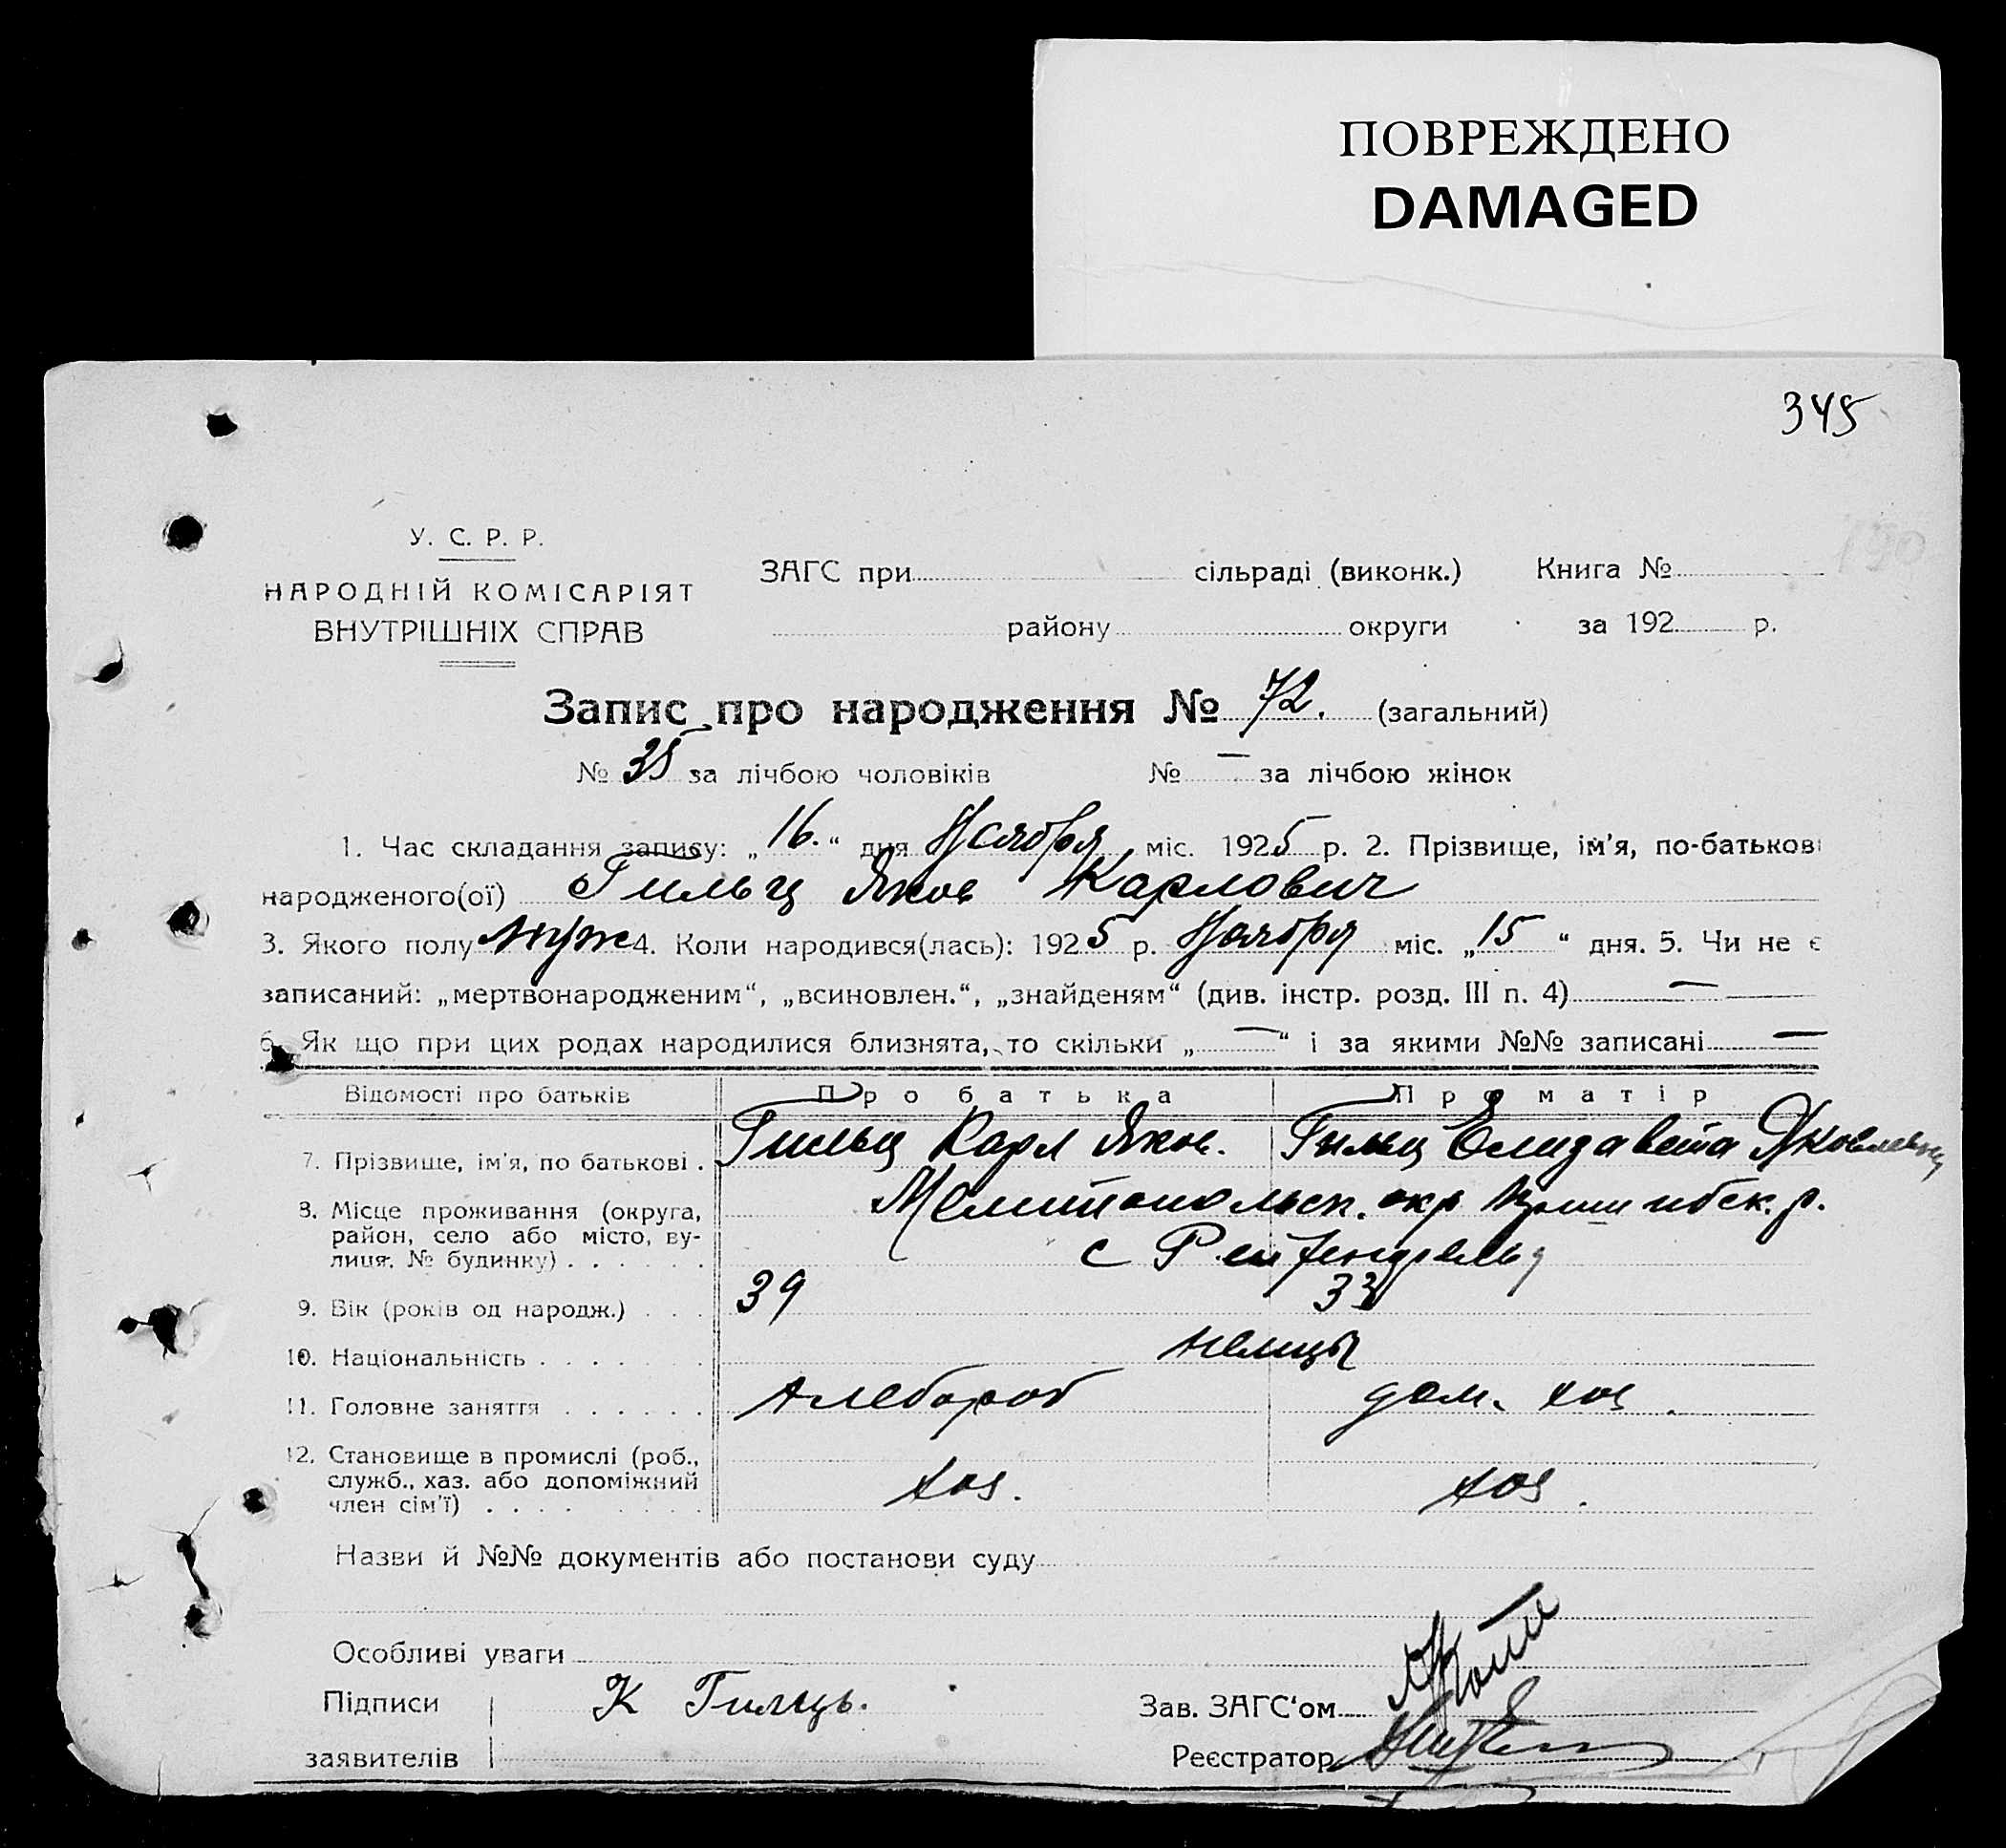 ПОВРЕЖДЕНО
DAMAGED
345
190
У. С. Р. Р.
НАРОДНІЙ КОМІСАРІЯТ
ВНУТРІШНІХ СПРАВ
ЗАГС при сільраді (виконк.) Книга №
району округи за 192 р.
Запис про народження № 72. (загальний)
№ 35 за лічбою чоловіків № — за лічбою жінок
1. Час складання запису: „16.“ дня Ноября міс. 1925 р. 2. Прізвище, ім'я, по-батькові
народженого(ої) Гильц Яков Карлович
3. Якого полу муж 4. Коли народився(лась): 1925 р. Ноября міс. „15“ дня. 5. Чи не є
записаний: „мертвонародженим“, „всиновлен.“, „знайденям“ (див. інстр. розд. III п. 4) —
6. Як що при цих родах народилися близнята, то скільки „—“ і за якими №№ записані —
Відомості про батьків Про батька Про матір
7. Прізвище, ім'я, по батькові . Гильц Карл Яков. Гильц Елизавета Яковлевна
8. Місце проживання (округа, Мелитопольск. окр Пришибск. р.
район, село або місто, ву- с Рейхенфельд
лиця. № будинку) . . . . . .
9. Вік (років од народж.) . . . 39 33
10. Національність . . . . . . . немцы
11. Головне заняття . . . . . . хлебороб дом. хоз.
12. Становище в промислі (роб.,
служб., хаз. або допоміжний хоз. хоз.
член сім'ї) . . . . . . . .
Назви й №№ документів або постанови суду
Особливі уваги
Підписи К Гилць. Зав. ЗАГС'ом
заявителів Реєстратор